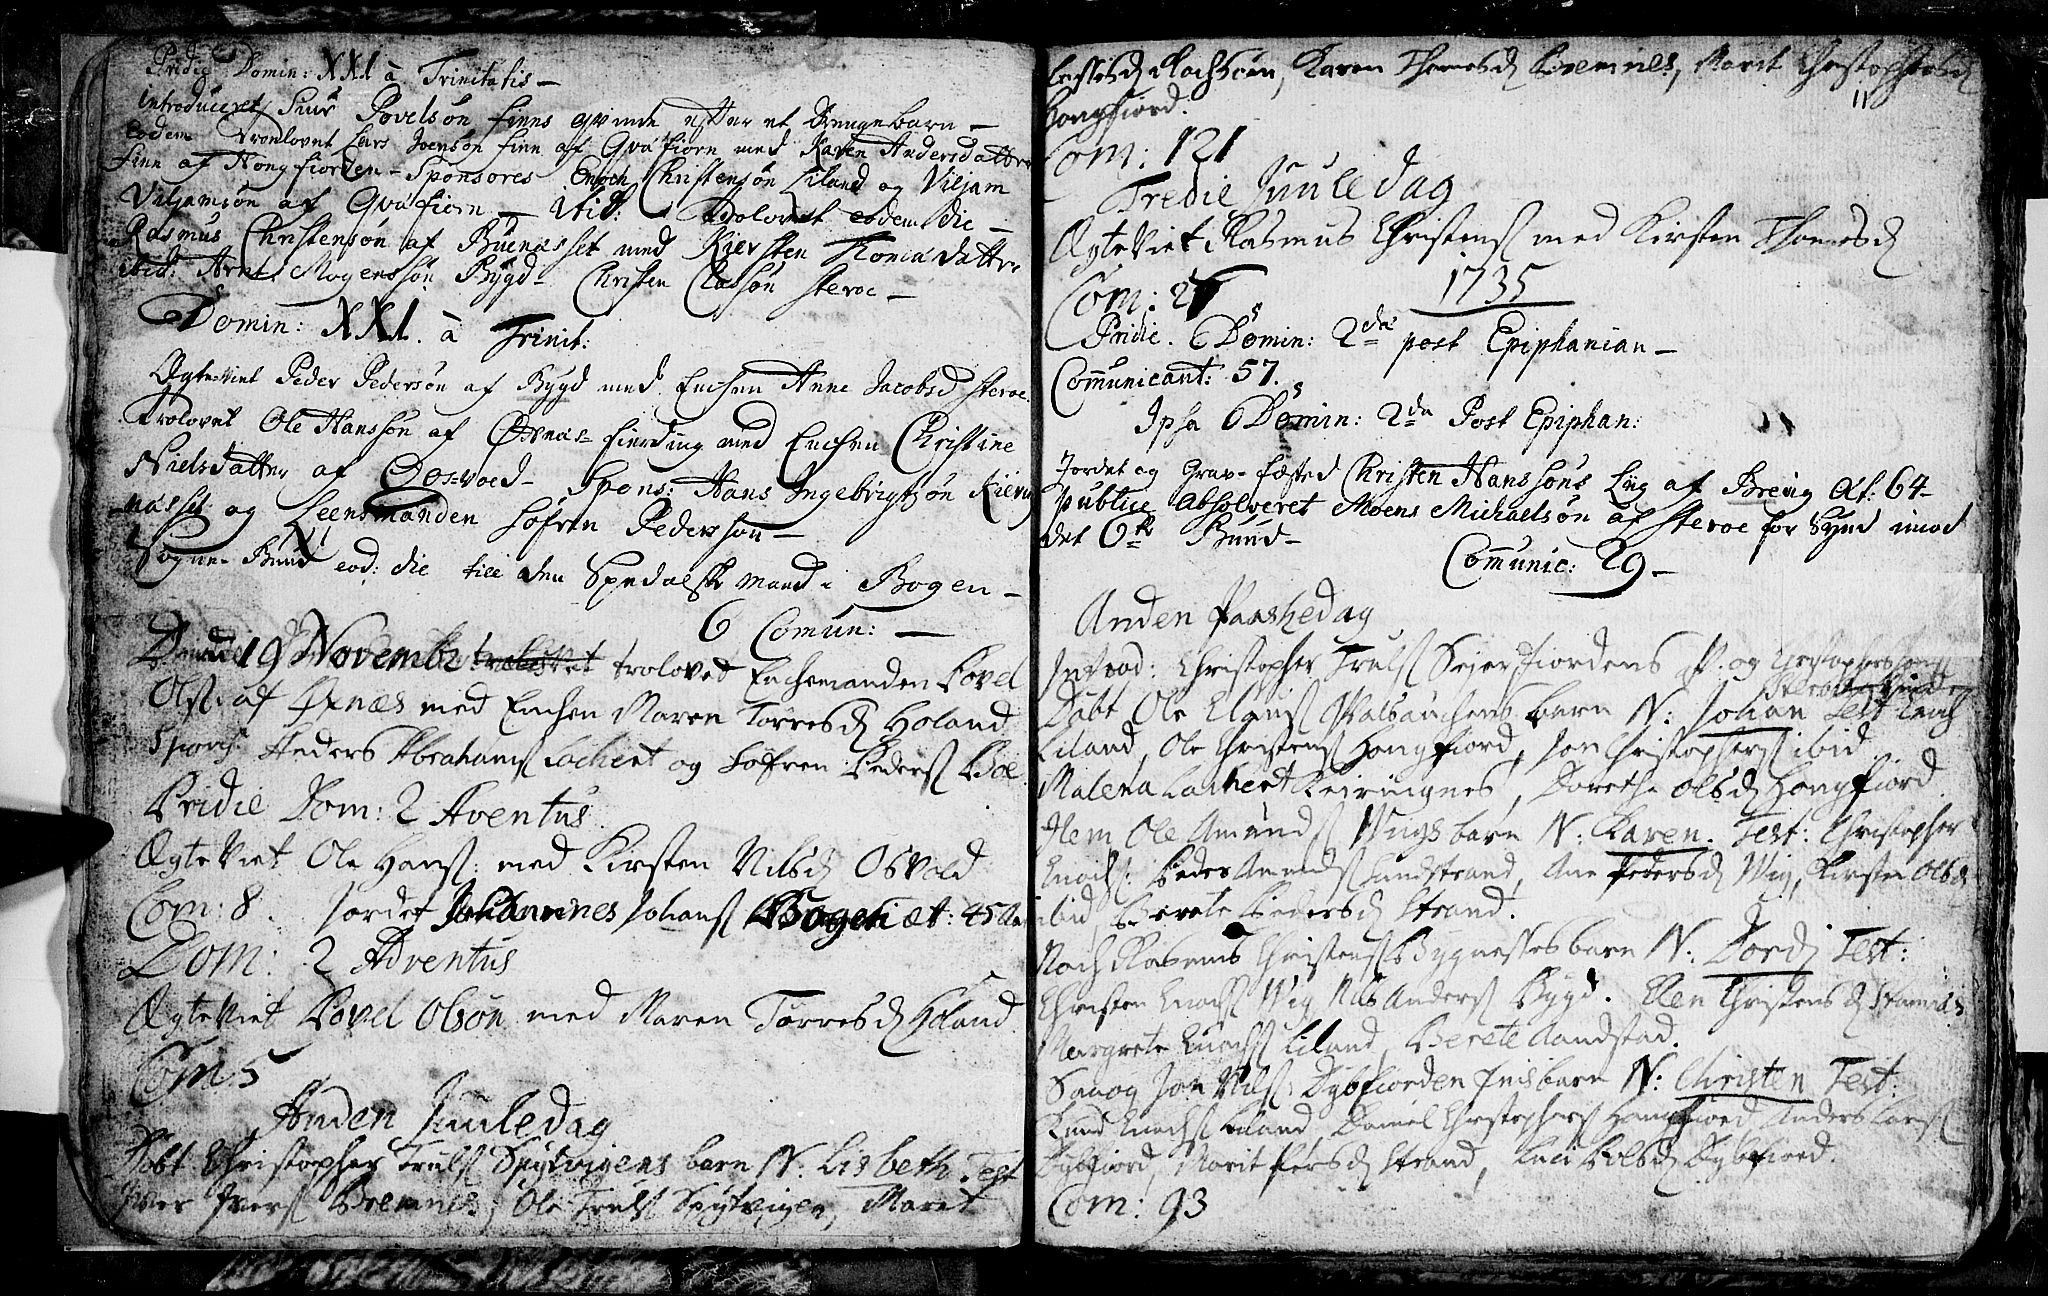 Pridie Domin: XXI à Trinitatis –
Introduceret Siur Povelsøn Finns qvinde efter et Drengebarn –
eodem Troelovet Lars Joensøn Finn af Qvæfiorn med Karen Andersdatter
Finn af Kongfiorden – Sponsores Enoch Christensøn Liland og Viljam
Viljamsøn af Qvæfiorn – ibid: Trolovet eodem die –
Rasmus Christensøn af Buenæsset med Kiersten Thomædatter
ibid: Arnt Mogenssøn Bygd – Christen Classøn Steroe –
Domin: XXI. à Trinit:
Ægteviet Peder Pedersøn af Bygd med Enchen Anne Jacobsd Steroe
Trolovet Ole Hanssøn af Øxnæs-fierding med Enchen Christine
Nielsdatter af Oosvoed – Spons: Hans Ingebrigtsøn Kiering
næsset og Leensmanden Sofren Pedersson –
Sogne-Bud eod: die till den Spedalske mand i Bogen –
6 Comun: –
19 Novembr trolovet Enchemanden Povel
Ols. af Øxnæs med Enchen Maren Torresd Holand
Spons: Anders Abrahams Lochert og Sofren Peders Boe
Pridie Dom: 2 Aventus
Ægteviet Ole Hans: med Kirsten Nilsd Osvold
Com: 8. Jordet Johannes Johans Bogen æt: 45 An
Dom: 2 Adventus
Ægteviet Povel Olsøn med Maren Torresd Holand
Com: 5
Anden Juuledag
Døbt Christopher Truls Spytvigens barn N: Lisbeth. Test
Iver Ivers Bremnes, Ole Truls Spytvigen, Maret
Karen Thomesd Bremnes, Marit Christophersd
Kongfiord.
11
Com: 121
Tredie Juuledag
Ægteviet Rasmus Christens med Kirsten Thomesd
Com: 27
1735
Pridie. Domin: 2da post Epiphanian –
Communicant: 57.
Ipsa Domin: 2da Post Epiphan:
Jordet og Grav-fæsted Christen Hanssøns Liig af Breivig Æt: 64 –
publice absolveret Moens Michaelsøn af Steroe for Synd imod
det 6te Buud –
Communic: 29 –
Anden Paaskedag
Introd: Christopher Truls Sejerfiordens og Christophers
Døbt Ole Clauss barn N: Johan Test Enoch
Liland, Ole Christens Kongfiord, Jon Christophers ibid
Malena Lochert Keiringnes, Dorethe Olsd Kongfiord
Item Ole Amunds Wiigs barn N: Karen. Test: Christopher
Enochs: Peder Amunds Sundstrand, Ane Pedersd Wig, Kirsten Olsd
ibid, Berete Pedersd Strand.
Noch Rasmus Christens Bygnesses barn N: Dordi Test:
Christen Enochs Wig Nils Anders Bygd. Elen Christensd
Margrete Enochs Liland, Berete Aandstad.
Saaog Jon Nils Dybfiorden Finsbarn N: Christen Test:
Knud Enochs Liland, Daniel Christophers Kongfiord Anders Lars
Dybfiord, Marit Persd Strand, Dybfiord.
Com: 93